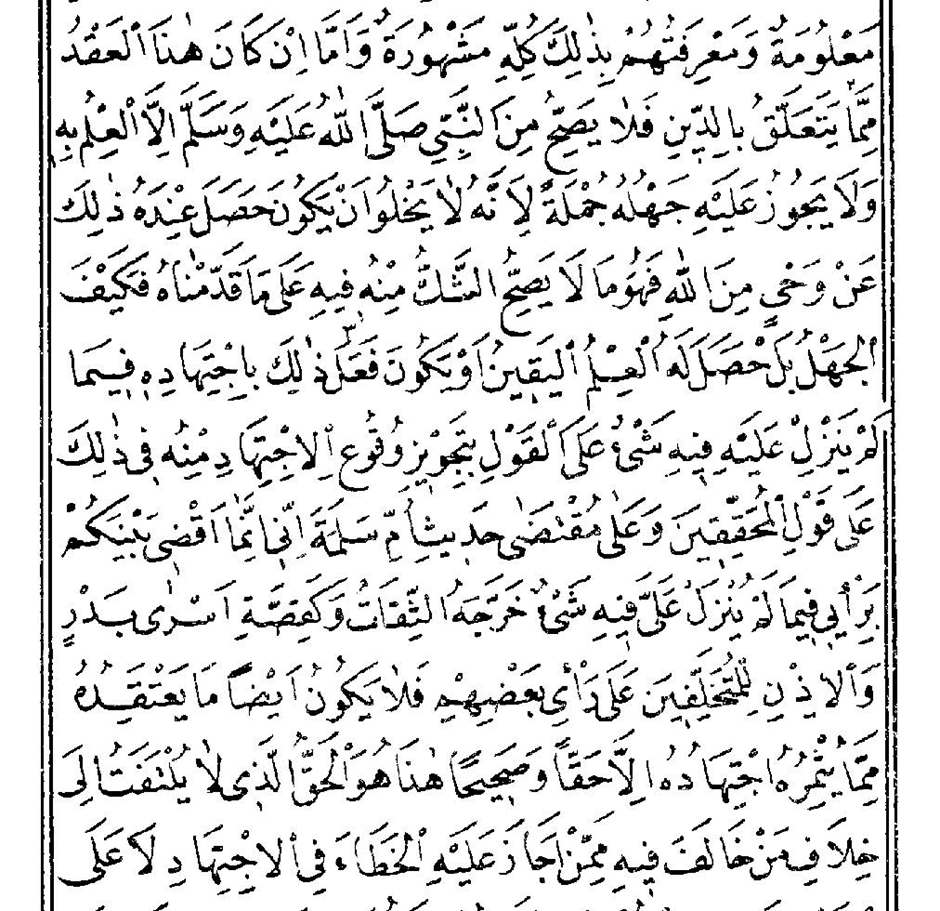 مَعْلُومَةٌ وَمَعْرِفَتُهُمْ بِذٰلِكَ كُلِّهِ مَشْهُورَةٌ وَاَمَّا اِنْ كَانَ هٰذَا الْعَقْدُ
مِمَّا يَتَعَلَّقُ بِالدِّينِ فَلَا يَصِحُّ مِنَ النَّبِيِّ صَلَّى اللّٰهُ عَلَيْهِ وَسَلَّمَ اِلَّا الْعِلْمُ بِهِ
وَلَا يَجُوزُ عَلَيْهِ جَهْلُهُ جُمْلَةً لِاَنَّهُ لَا يَخْلُو اَنْ يَكُونَ حَصَلَ عِنْدَهُ ذٰلِكَ
عَنْ وَحْيٍ مِنَ اللّٰهِ فَهُوَ مَا لَا يَصِحُّ الشَّكُّ مِنْهُ فِيهِ عَلَى مَا قَدَّمْنَاهُ فَكَيْفَ
الْجَهْلُ بَلْ حَصَلَ لَهُ الْعِلْمُ الْيَقِينُ اَوْ يَكُونَ فَعَلَ ذٰلِكَ بِاجْتِهَادِهِ فِيمَا
لَمْ يَنْزِلْ عَلَيْهِ فِيهِ شَىْءٌ عَلَى الْقَوْلِ بِتَجْوِيزِ وُقُوعِ الِاجْتِهَادِ مِنْهُ فِى ذٰلِكَ
عَلَى قَوْلِ الْمُحَقِّقِينَ وَعَلٰى مُقْتَضٰى حَدِيثِ اُمِّ سَلَمَةَ اِنِّى اِنَّمَا اَقْضِى بَيْنَكُمْ
بِرَأْيِى فِيمَا لَمْ يُنْزَلْ عَلَىَّ فِيهِ شَىْءٌ خَرَّجَهُ الثِّقَاتُ وَكَقِصَّةِ اَسْرٰى بَدْرٍ
وَالْاِذْنِ لِلْمُتَخَلِّفِينَ عَلَى رَأْىِ بَعْضِهِمْ فَلَا يَكُونُ اَيْضًا مَا يَعْتَقِدُهُ
مِمَّا يُثْمِرُهُ اجْتِهَادُهُ اِلَّا حَقًّا وَصَحِيحًا هٰذَا هُوَ الْحَقُّ الَّذِى لَا يُلْتَفَتُ اِلَى
خِلَافِ مَنْ خَالَفَ فِيهِ مِمَّنْ اَجَازَ عَلَيْهِ الْخَطَاءَ فِى الِاجْتِهَادِ لَا عَلَى